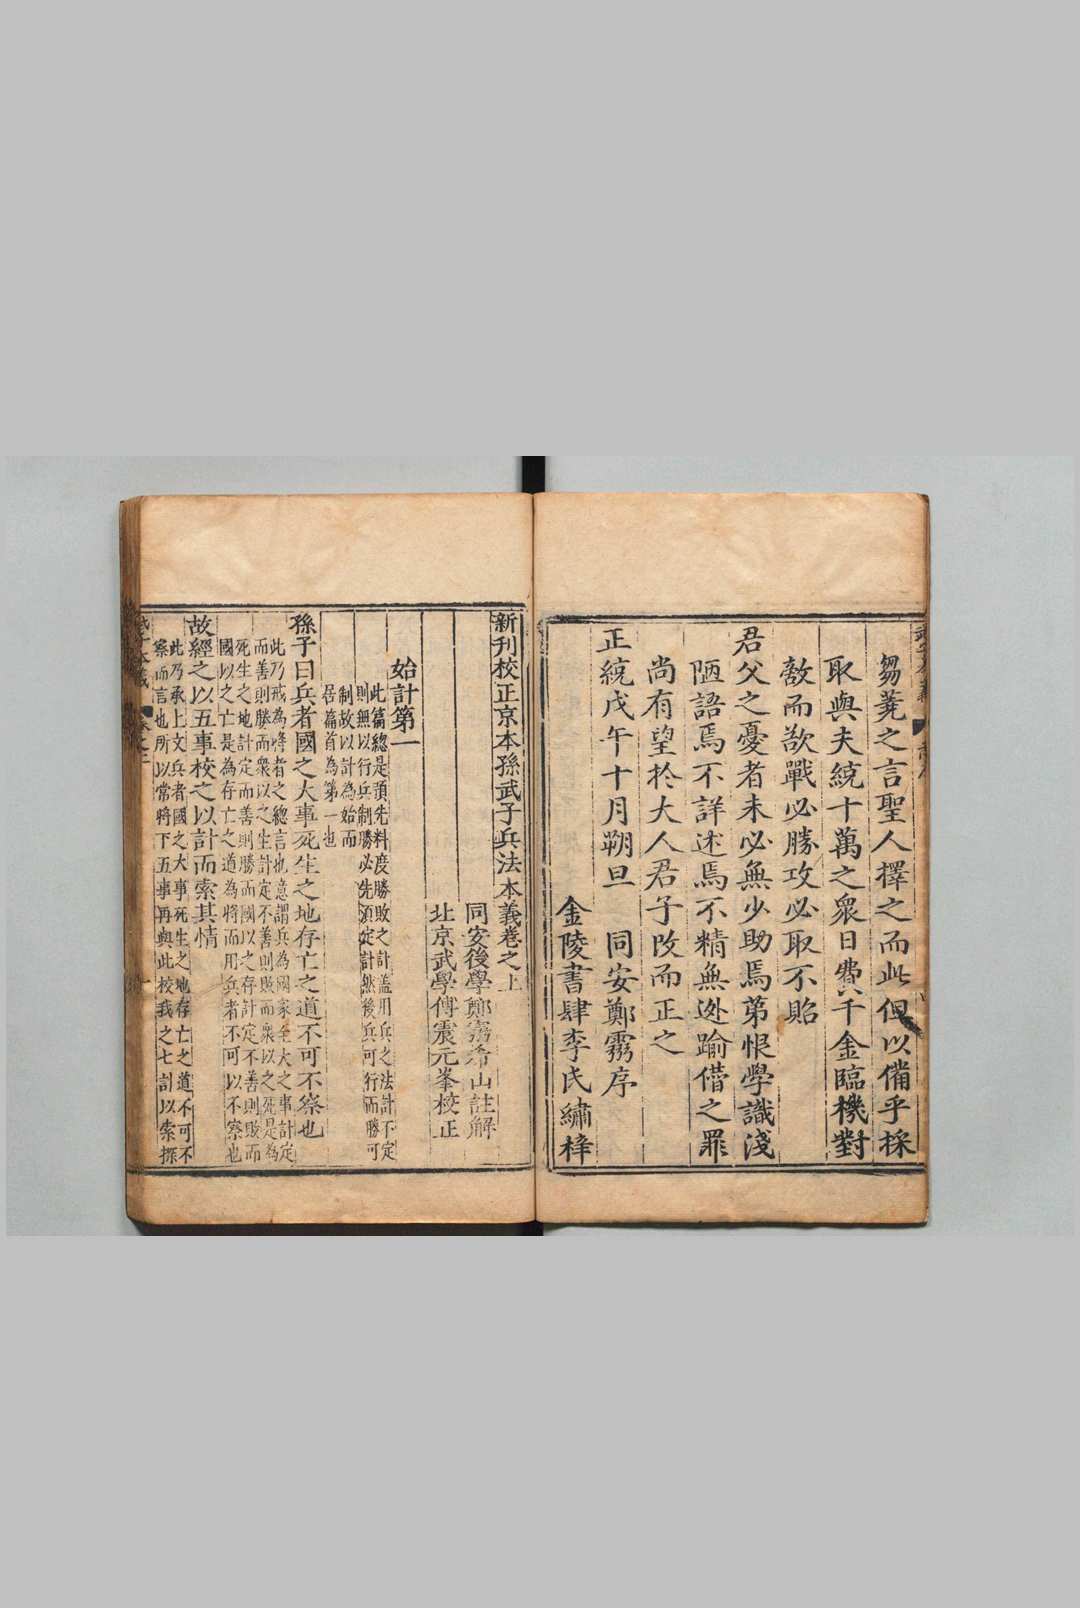 芻蕘之言聖人擇之而此但以備乎採
取與夫統十萬之眾日費千金臨機對
敵而欲戰必勝攻必取不貽
君父之憂者未必無少助焉第恨學識淺
陋語焉不詳述焉不精無逃踰僭之罪
尚有望於大人君子改而正之
正統戊午十月朔旦　同安鄭霱序
金陵書肆李氏繡梓
新刊校正京本孫武子兵法本義卷之上
同安後學鄭霱希山註解
北京武學傅震元峯校正
始計第一
此篇總是預先料度勝敗之計蓋用兵之法計不定
則無以行兵制勝必先須定計然後兵可行而勝可
制故以計為始而
居篇首為第一也
孫子曰兵者國之大事死生之地存亡之道不可不察也
此乃戒為將者之總言也意謂兵為國家至大之事計定
而善則勝而眾以之生計定不善則敗而眾以之死是為
死生之地計定而善則勝而國以之存計定不善則敗而
國以之亡是為存亡之道為將而用兵者不可以不察也
故經之以五事校之以計而索其情
此乃承上文兵者國之大事死生之地存亡之道不可不
察而言也所以常將下五事再與此校我之七計以索探